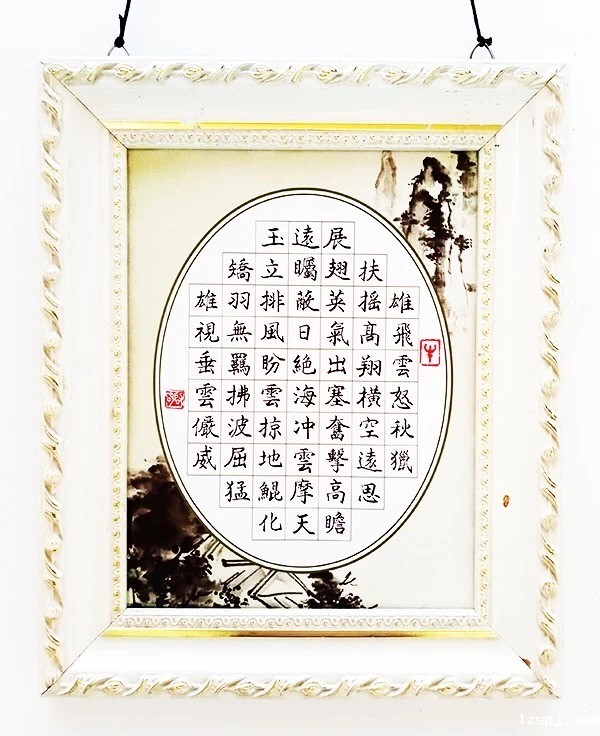 雄飛雲怒秋獵
扶搖髙翔橫空遠思
展翅英氣出塞奮擊高瞻
遠矚蔽日絕海冲雲摩天
玉立排風盼雲掠地鯤化
矯羽無羈拂波屈猛
雄視垂雲儼威
lzspj.com